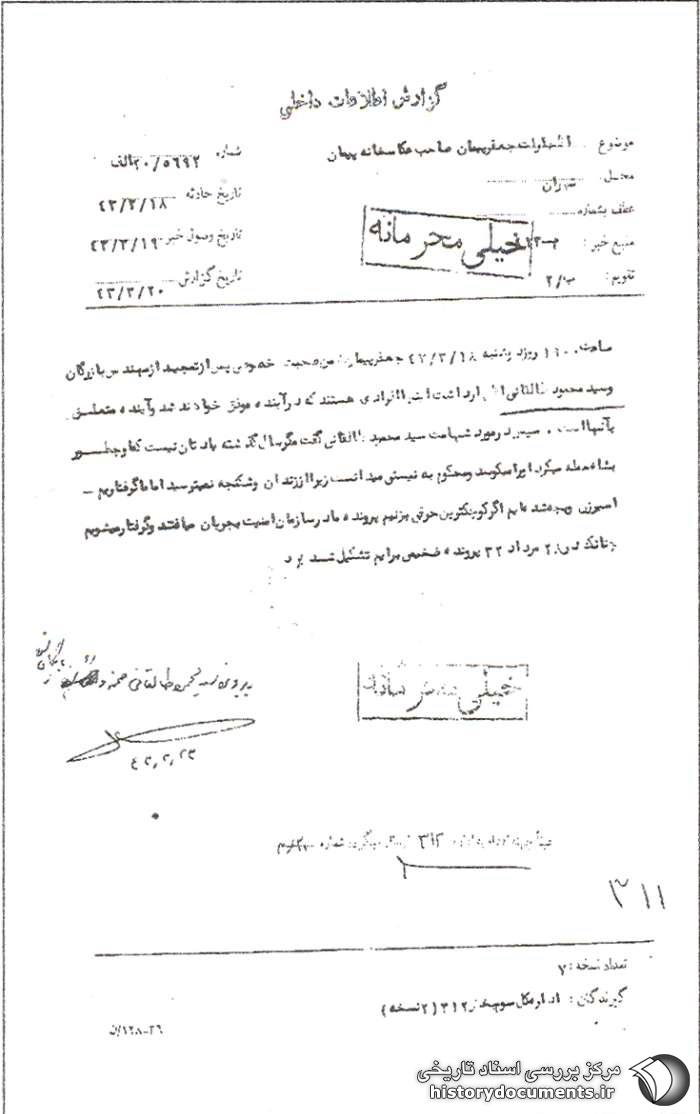 گزارش اطلاعات داخلی
موضوع اظهارات جعفر پیمان صاحب عکاسخانه پیمان
شماره ۲۰/۵۶۹۲ الف
محل تهران
تاریخ حادثه ۴۳/۳/۱۸
عطف بشماره
خیلی محرمانه
تاریخ وصول خبر ۴۳/۳/۱۹
منبع خبر:
تقویم: ب/۲
تاریخ گزارش ۴۳/۳/۲۰
ساعت ۱۹۰۰ روز دوشنبه ۴۳/۳/۱۸ جعفر پیمان ضمن صحبت خصوصی پس از تمجید از مهندس بازرگان
وسید محمود طالقانی اظهارداشت اینها افرادی هستند که درآینده موفق خواهند شد وآینده متعلق
بآنهااست . سپس درمورد شهامت سید محمود طالقانی گفت مگر سال گذشته یادتان نیست که اوچطور
بشاه حمله میکرد اورا میکوبید ومحکوم به نیستی میدانست زیرا اززندان وشکنجه نمیترسید اما ماگرفتاریم -
اسیرزن وبچه شده ایم اگر کوچکترین حرفی بزنیم پرونده مادرسازمان امنیت بجریان میافتد وگرفتارمیشویم
چنانکه در ۲۸ مرداد ۳۲ پرونده ضخیمی برایم تشکیل شده بود
خیلی محرمانه
در پرونده سید محمود طالقانی ضمیمه و
۳۱۲ شماره
۳۱۱
تعداد نسخه: ۷
گیرندگان: اداره کل سوم بخش ۳۱۲ (۲ نسخه)
۱۲۸-۲۶/ن
مرکز بررسی اسناد تاریخی
historydocuments.ir